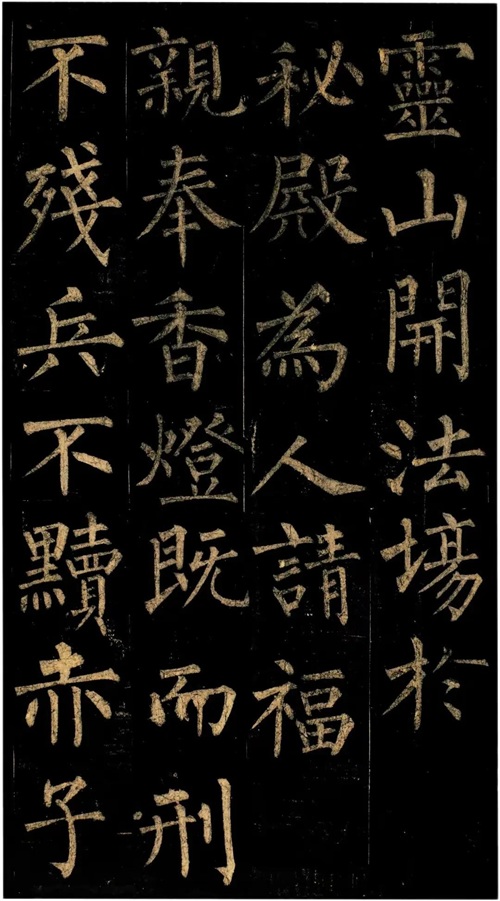 靈山開法場於
秘殿為人請福
親奉香燈既而刑
不殘兵不黷赤子